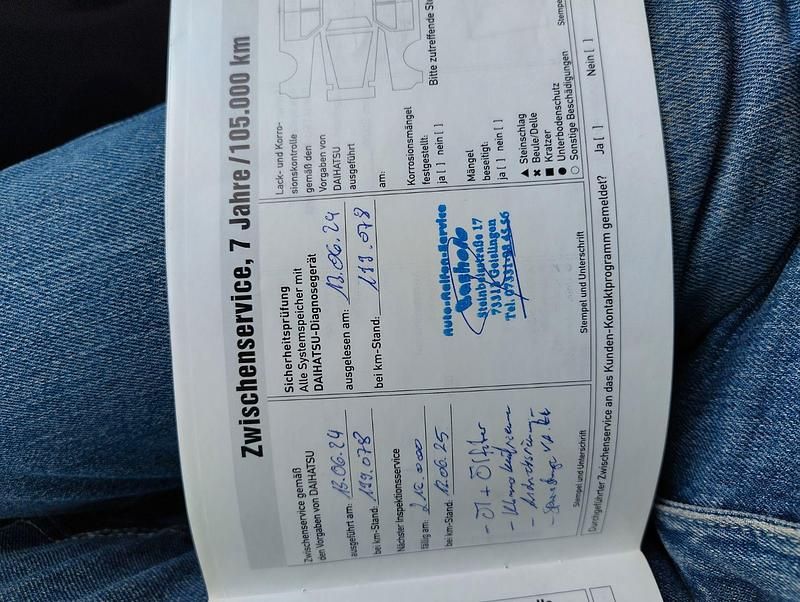 Zwischenservice, 7 Jahre/105.000 km
Zwischenservice gemäß
den Vorgaben von DAIHATSU
ausgeführt am: 13.06.24
bei km-Stand: 199.078
Nächster Inspektionsservice
fällig am:
bei km-Stand: 12.06.25
- Öl + Ölfilter
Stempel und Unterschrift
Sicherheitsprüfung
Alle Systemspeicher mit
DAIHATSU-Diagnosegerät
ausgelesen am: 13.06.24
bei km-Stand: 199.078
Auto-Reifen-Service
Steinbeisstraße 17
Geislingen
Tel.
Stempel und Unterschrift
Lack- und Korro-
sionskontrolle
gemäß den
Vorgaben von
DAIHATSU
ausgeführt
am:
Korrosionsmängel
festgestellt:
ja [ ] nein [ ]
Mängel
beseitigt:
ja [ ] nein [ ]
Bitte zutreffende
▲ Steinschlag
✖ Beule/Delle
■ Kratzer
● Unterbodenschutz
○ Sonstige Beschädigungen
Durchgeführter Zwischenservice an das Kunden-Kontaktprogramm gemeldet? Ja [ ] Nein [ ]